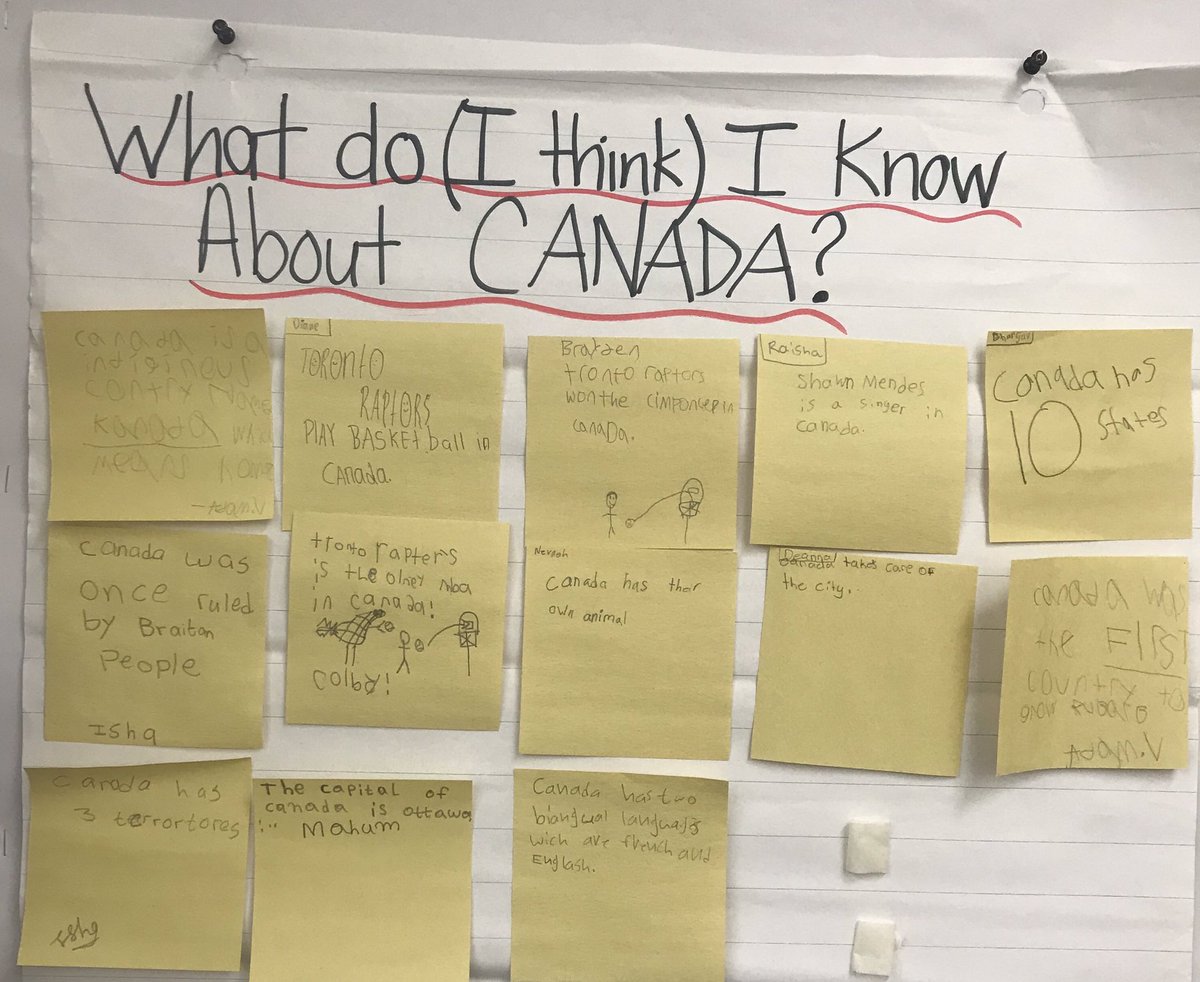 What do (I think) I Know
About CANADA?
canada is a
indiginous
contry
kanada
means
-Adam.V
Diane
TORONTO
RAPTORS
PLAY BASKETball in
CANADA.
Brayden
tronto raptors
won the cimponcep in
canaDa.
Raisha
Shawn Mendes
is a singer in
canada.
Canada has
10 states
canada was
once ruled
by Braitan
People
Isha
tronto rapters
is the olney nba
in canada!
colby!
canada has ther
own animal
Deanna
canada takes care of
the city.
canada was
the FIRST
country to
grow
Adam.V
Canada has
3 terrortores
Isha
The capital of
canada is ottawa
!.. Maham
Canada has two
wich are french and
English.